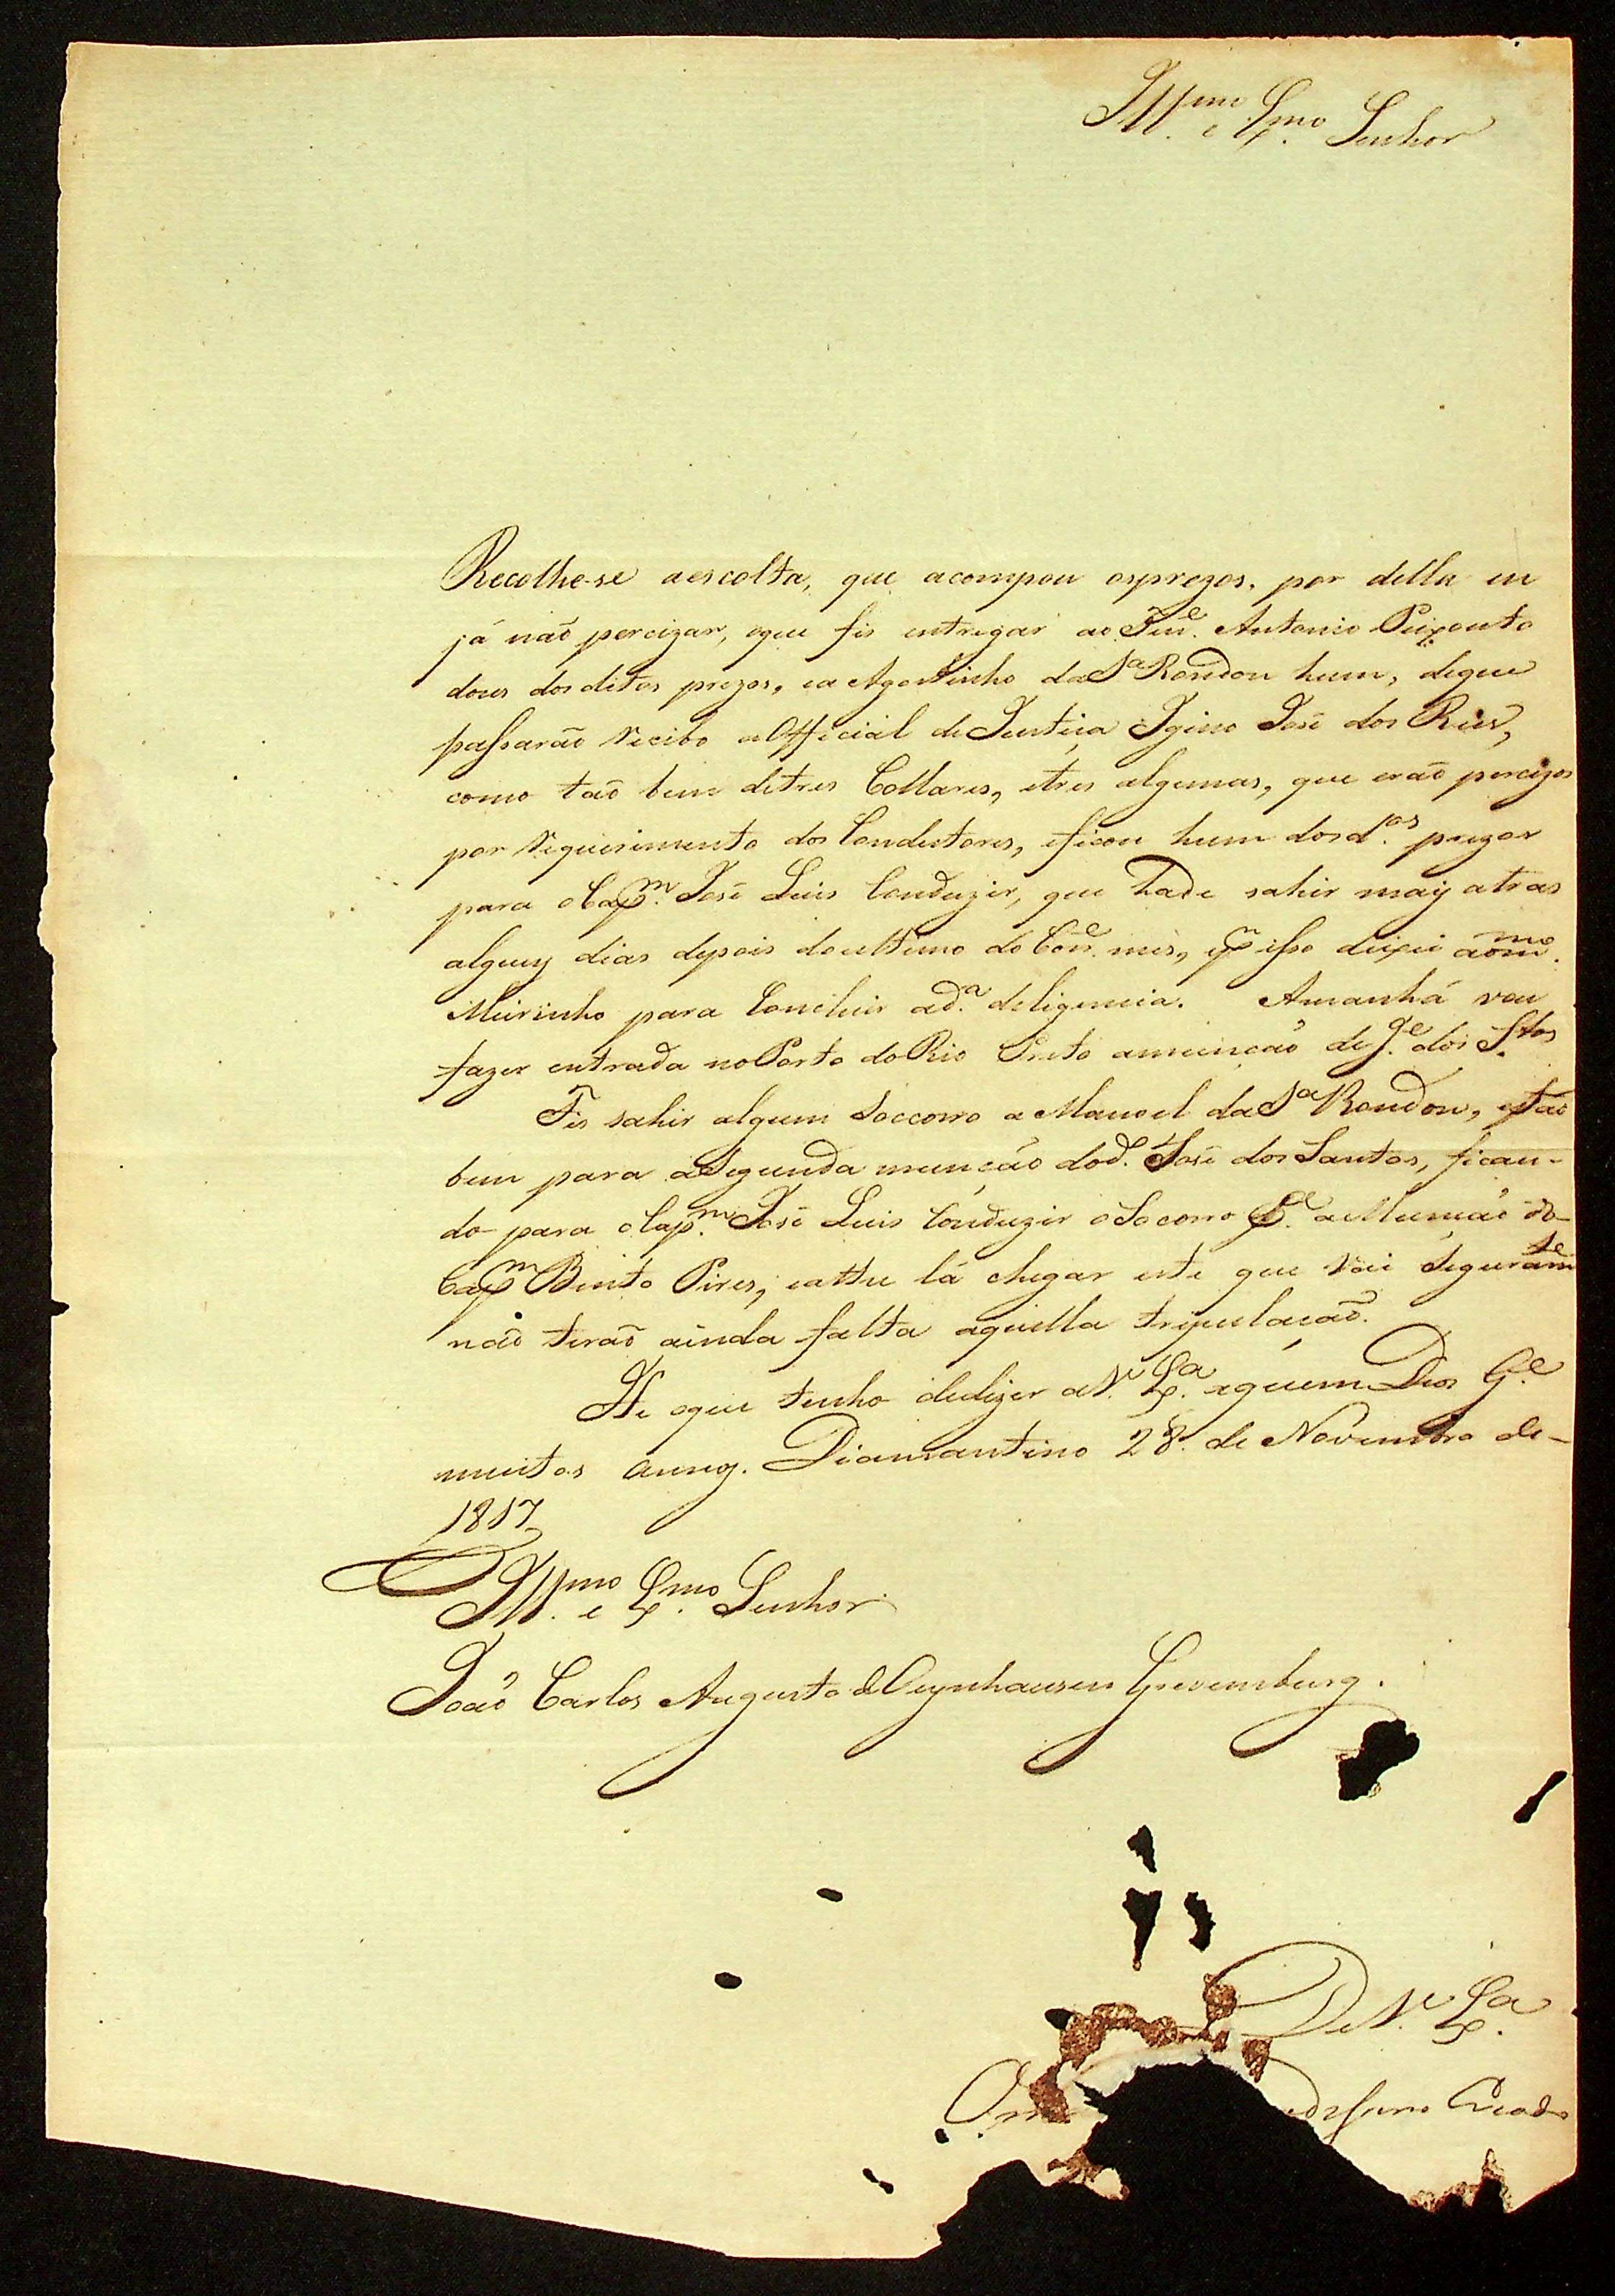 Ill.mo e Ex.mo Senhor
Recolhe-se a escolta, que acompou osprezos, por della eu
já não percizar, eque fis entregar ao Ten.e Antonio Peixouto
dous dos ditos prezos, ea Agostinho da S.a Rondon hum, deque
passarão recibo a Official de Justiça Igino José dos Reis,
como tão bem detres Collares, etres algemas, que erão percizos
por requerimento dos Condutores, eficou hum dos d.os prezos
para o Cap.m José Luis Conduzir, que hade sahir mais atras
alguns dias depois do ultimo do Cor.e mes, e p.r isso deixei ao m.mo
Meirinho para Concluir a d.a deligencia. Amanhã vou
fazer entrada no Porto do Rio Preto a munção de J.e dos S.tos
Fis sahir algum Soccorro a Manoel da S.a Rondon, e tão
bem para a Segunda munção do d.o José dos Santos, fican-
do para o Cap.m José Luis Conduzir o Socorro p.a a Munção do
Cap.m Bento Pires; eathe lá chegar este que vai seguram.te
não terão ainda falta aquella tripulação.
He oque tenho dedizer a V. Ex.a aquem Deos G.e
muitos annos. Diamantino 28. de Novembro de-
1817
Ill.mo e Ex.mo Senhor
João Carlos Augusto de Oeynhausen Grevemburg.
De V. Ex.a
Creado